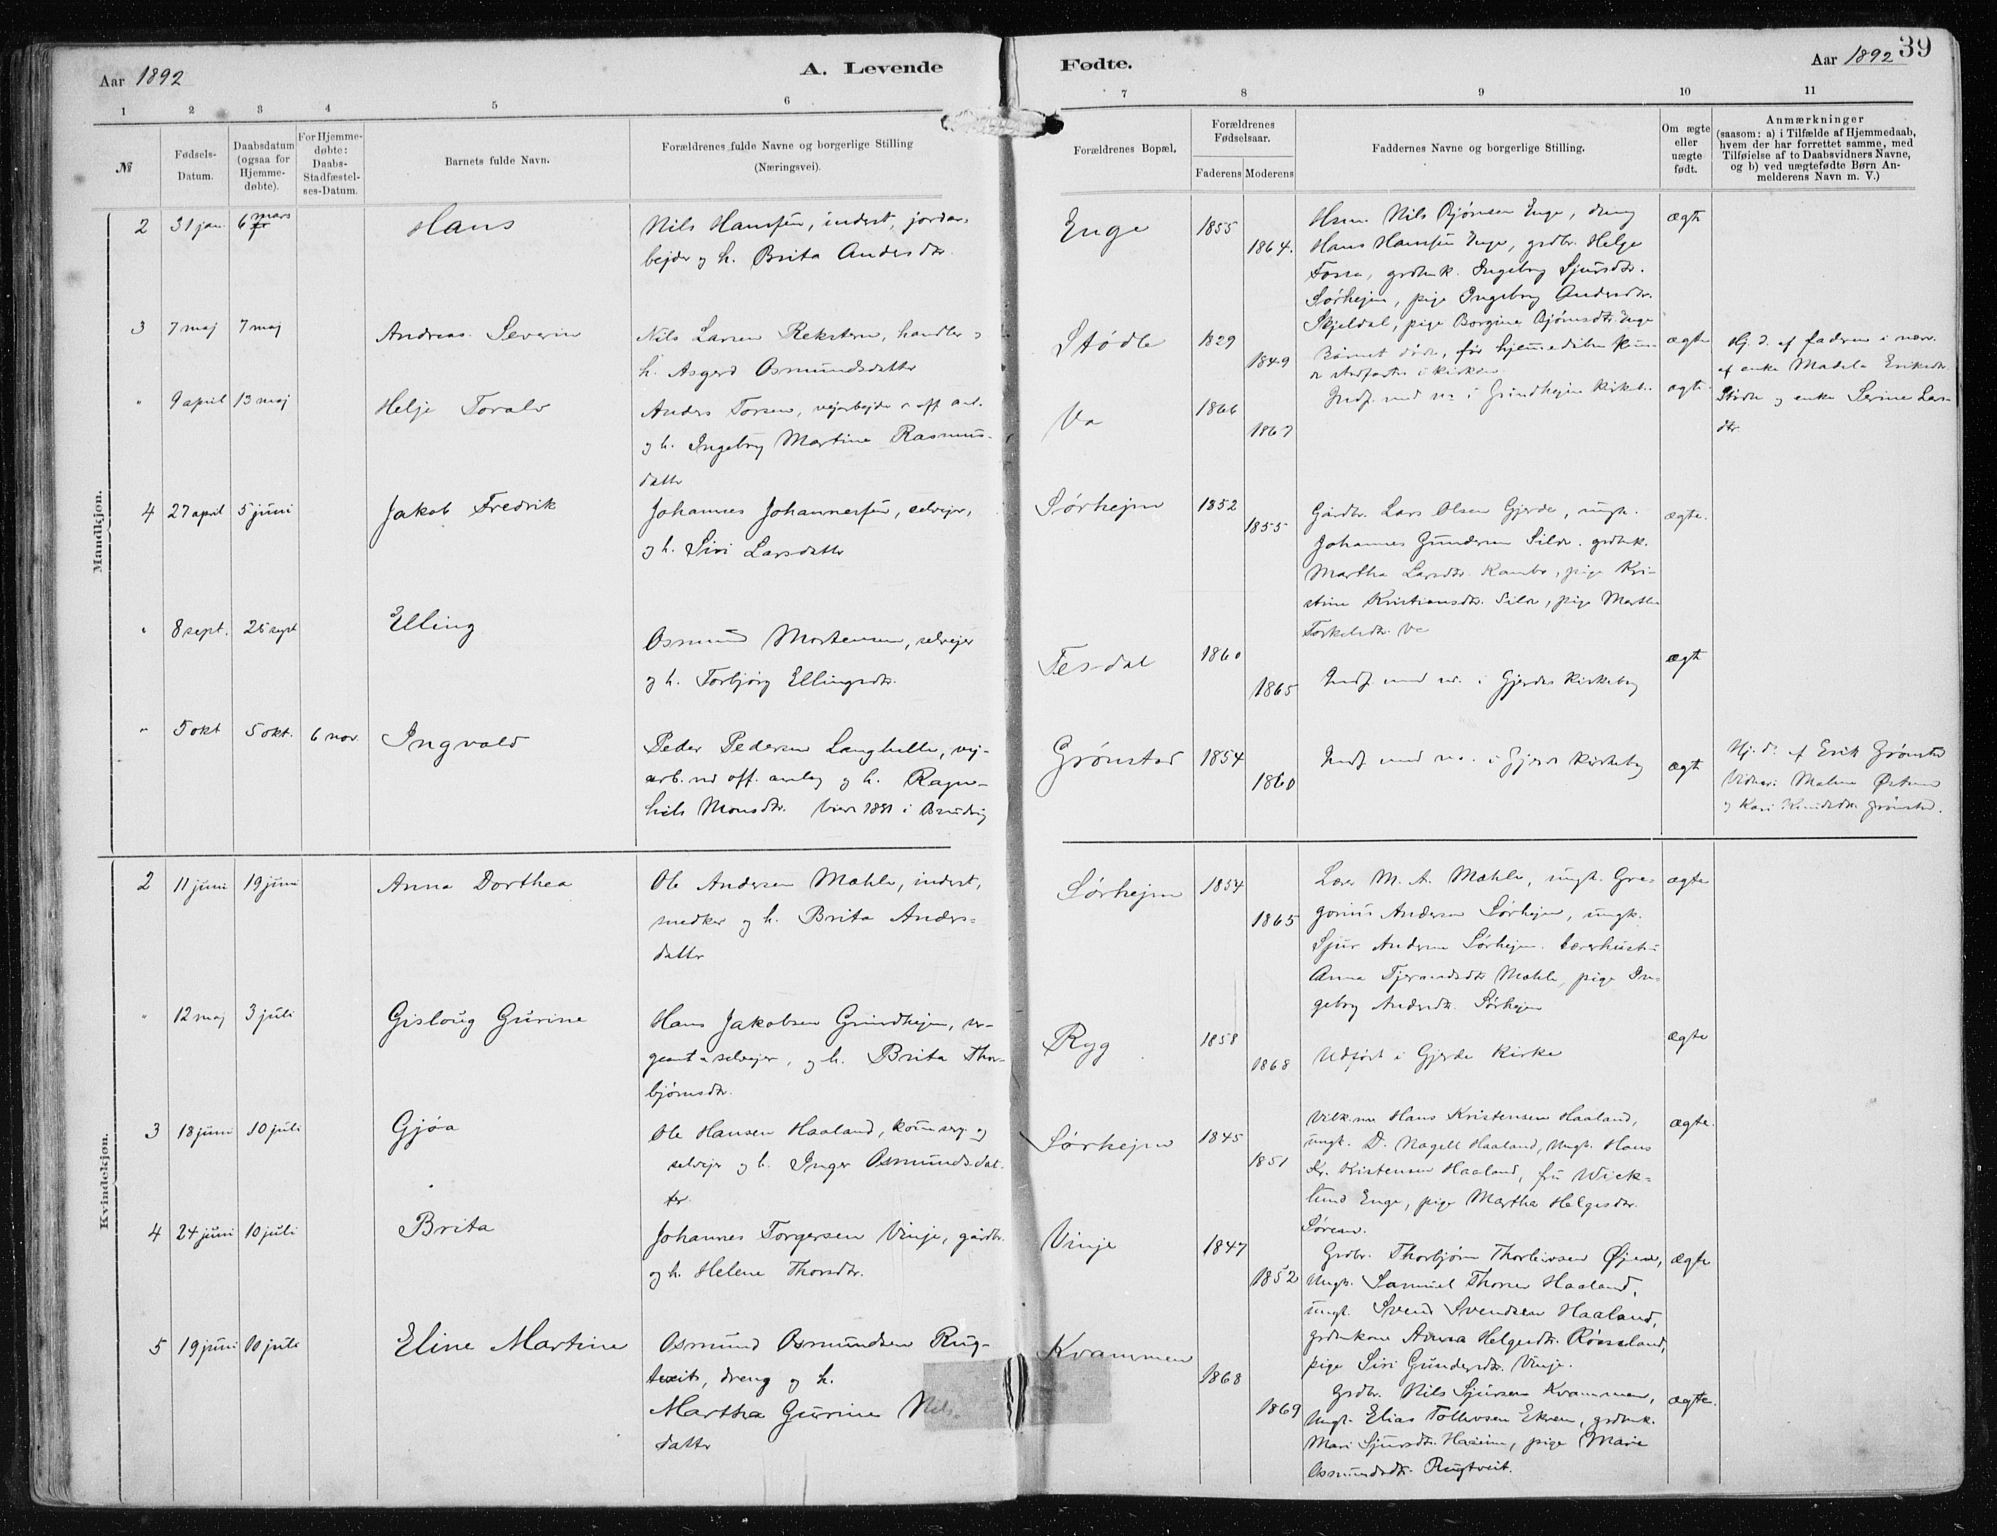 Aar 1892
A. Levende
Fødte.
Aar 1892
39
1 2 3 4 5 6 7 8 9 10 11
№
Fødsels-
Datum.
Daabsdatum
(ogsaa for
Hjemme-
døbte).
For Hjemme-
døbte:
Daabs-
Stadfæstel-
ses-Datum.
Barnets fulde Navn.
Forældrenes fulde Navne og borgerlige Stilling
(Næringsvei).
Forældrenes Bopæl.
Forældrenes
Fødselsaar.
Faderens Moderens
Faddernes Navne og borgerlige Stilling.
Om ægte
eller
uægte
født.
Anmærkninger
(saasom: a) i Tilfælde af Hjemmedaab,
hvem der har forrettet samme, med
Tilføielse af to Daabsvidners Navne,
og b) ved uægtefødte Børn An-
melderens Navn m. V.)
Mandkjøn.
2 31 jan. 6 mars
Hans
Nils Hansen, inderst, jordar-
bejder og h. Brita Andersdtr.
Enge
1855
1864.
Nils Bjørnsen Enge, dreng
Hans Hansen Enge, grdbr. Helge
Fosse, grdbrk. Ingebrg Sjursdtr.
Sørhejm, pige Ingebrg Andersdtr.
Skjeldal, pige Borgine Bjørnsdtr. Enge
ægte
3 7 maj 7 maj
Andreas Severin
Nils Larsen Reksteen, handler og
h. Asgerd Osmundsdatter
Stødle
1829
1849
Barnet døde, før hjemmedåben kun-
de stadfæstes i kirken
ægte
Hj. d. af faderen i nærv.
af enke Madela Eriksdtr.
Stødle og enke Serine Lars-
dtr.
" 9 april 13 maj
Helje Toralv
Anders Torsen, vejarbejder v. off. anl.
og h. Ingebrg Martine Rasmus-
datter
Va
1866
1867
Indf. med no. i Grindhejm kirkeb.
ægte
4 27 april 5 juni
Jakob Fredrik
Johannes Johannessen, selvejer,
og h. Siri Larsdatter
Sørhejm
1852
1855
Gårdbr. Lars Olsen Gjerde, ungk.
Johannes Gundersen Silde. grdbrk.
Martha Larsdtr. Kambe, pige Kri-
stine Kristiansdtr. Silde, pige Martha
Torkelsdtr. Va
ægte.
" 8 sept. 25 sept
Elling
Osmund Mortensen, selvejer
og h. Torbjørg Ellingsdtr.
Tesdal
1860
1865
Indf. med no. i Gjerdes kirkebog
ægte
" 5 okt 5 okt. 6 nov.
Ingvald
Peder Pedersen Langhelle, vej-
arb. ved off. anlæg og h. Ragn-
hild Monsdtr. Viet 1881 i Bruvig
Grønstad
1854
1860
Indf. med no. i Gjerde kirkebog
ægte
Hj. d. af Erik Grønstad
Vidner: Malene Østensen
og Kari Knudsdtr. Grønstad.
Kvindekjøn.
2 11 juni 19 juni
Anna Dorthea
Ole Andersen Mæhle, inderst,
snedker og h. Brita Anders-
datter
Sørhejm
1854
1865
Lærer M. A. Mæhle, ungk. Gre-
gorius Andersen Sørhejm, ungk.
Sjur Andersen Sørhejm. Lærerhustru
Anna Tjerandsdtr. Mæhle, pige In-
gebrg Andersdtr. Sørhejm
ægte
" 12 maj 3 juli
Gisloug Gurine
Hans Jakobsen Grindhejm, ser-
geant & selvejer, og h. Brita Thor-
bjørnsdtr.
Ryg
1858
1868
Udført i Gjerde kirke
ægte
3 18 juni 10 juli
Gjøa
Ole Hansen Haaland, korn serg. og
selvejer og h. Inger Osmundsdat-
ter.
Sørhejm
1845
1851
Hans Kristensen Haaland,
ungk. D. Nagell Haaland, Ungk. Hans
Kr. Kristensen Haaland, fru Wick-
lund Enge, pige Martha Helgesdtr.
Sørean.
ægte.
4 24 juni 10 juli
Brita
Johannes Torgersen Vinje, gårdbr.
og h. Helene Thorsdtr.
Vinje
1847
1852
Grdbr. Thorbjørn Thorleivsen Øjene,
Ungk. Samuel Thorsen Haaland,
ungk. Svend Svendsen Haaland,
grdbrkone Anna Helgesdtr. Røsseland,
pige Siri Gundersdtr. Vinje.
ægte
5 19 juni 10 juli
Eline Martine
Osmund Osmundsen Rug-
tveit, dreng og h.
Martha Gurine Nils-
datter
Kvammen
1868
1869
Grdbr. Nils Sjursen Kvammen,
Ungk. Elias Tollevsen Ekren, grdbrk.
Mari Sjursdtr. Haaeim, pige Marie
Osmundsdtr. Rugtveit.
ægte.